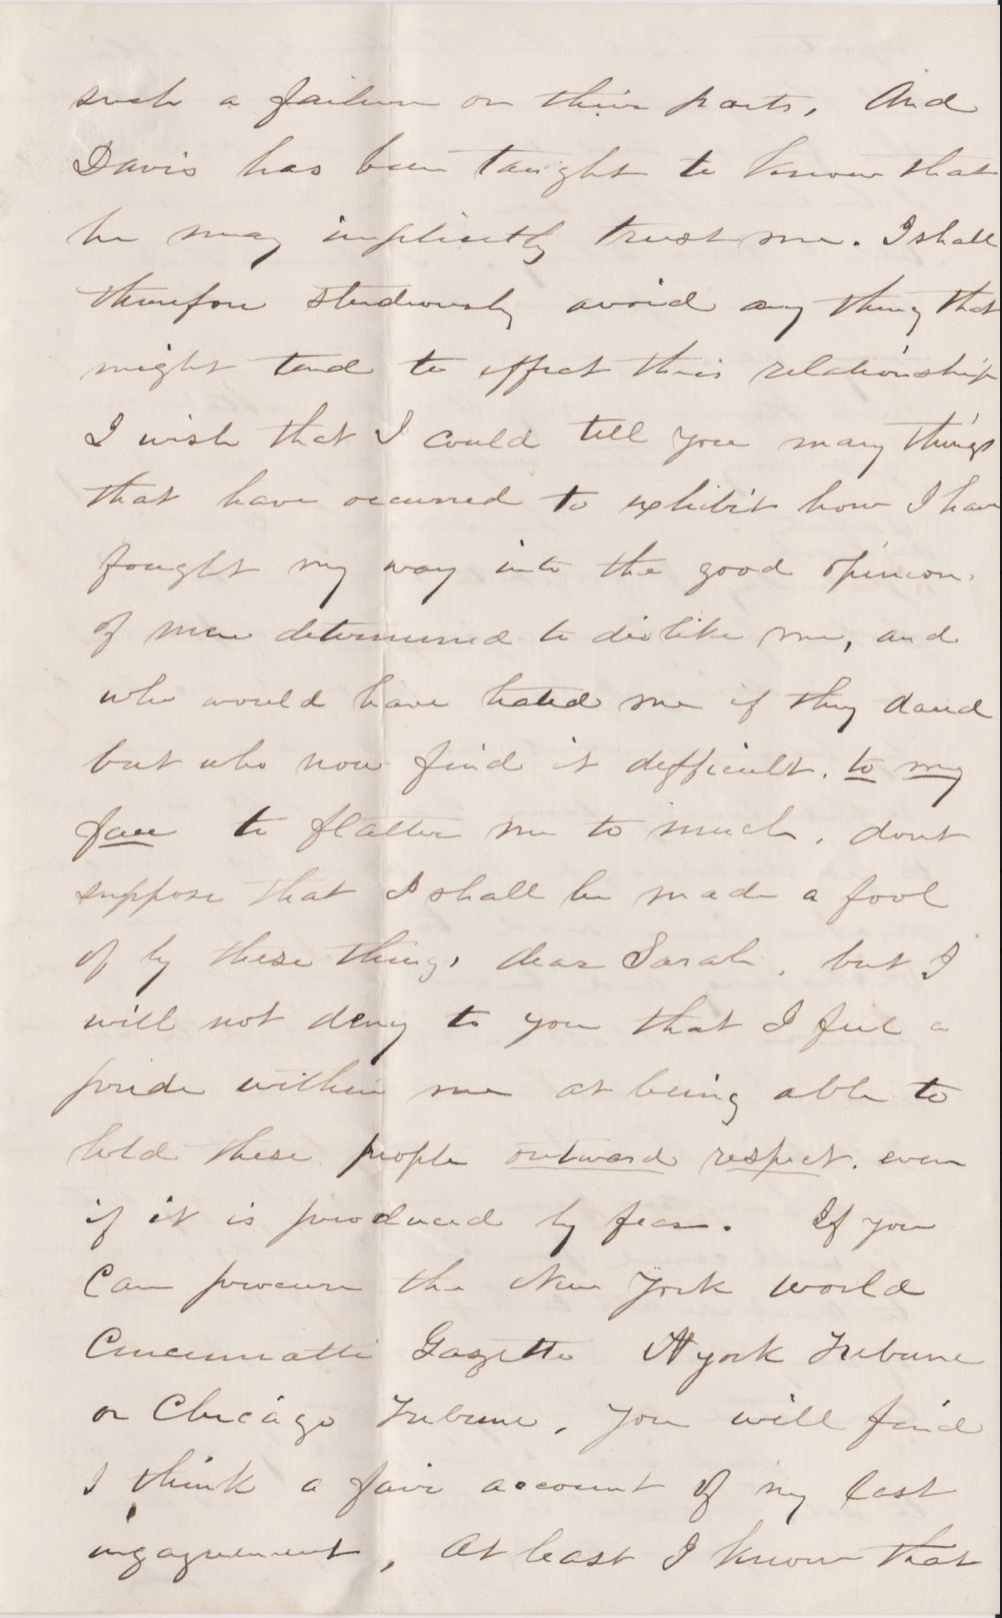 such a failure on their parts, And
Davis has been taught to know that
he may implicitly trust me. I shall
therefore studiously avoid any thing that
might tend to effect this relationship
I wish that I could tell you many things
that have occurred to exhibit how I have
fought my way into the good opinion.
of men determined to dislike me, and
who would have hated me if they dared
but who now find it difficult. to my
face to flatter me to much. dont
suppose that I shall be made a fool
of by these things dear Sarah. but I
will not deny to you that I feel a
pride within me at being able to
hold these people outward respect. even
if it is produced by fear. If you
Can procure the New York World
Cincinnatti Gazette N york Tribune
or Chicago Tribune, you will find
I think a fair account of my last
ingagement, At least I know that